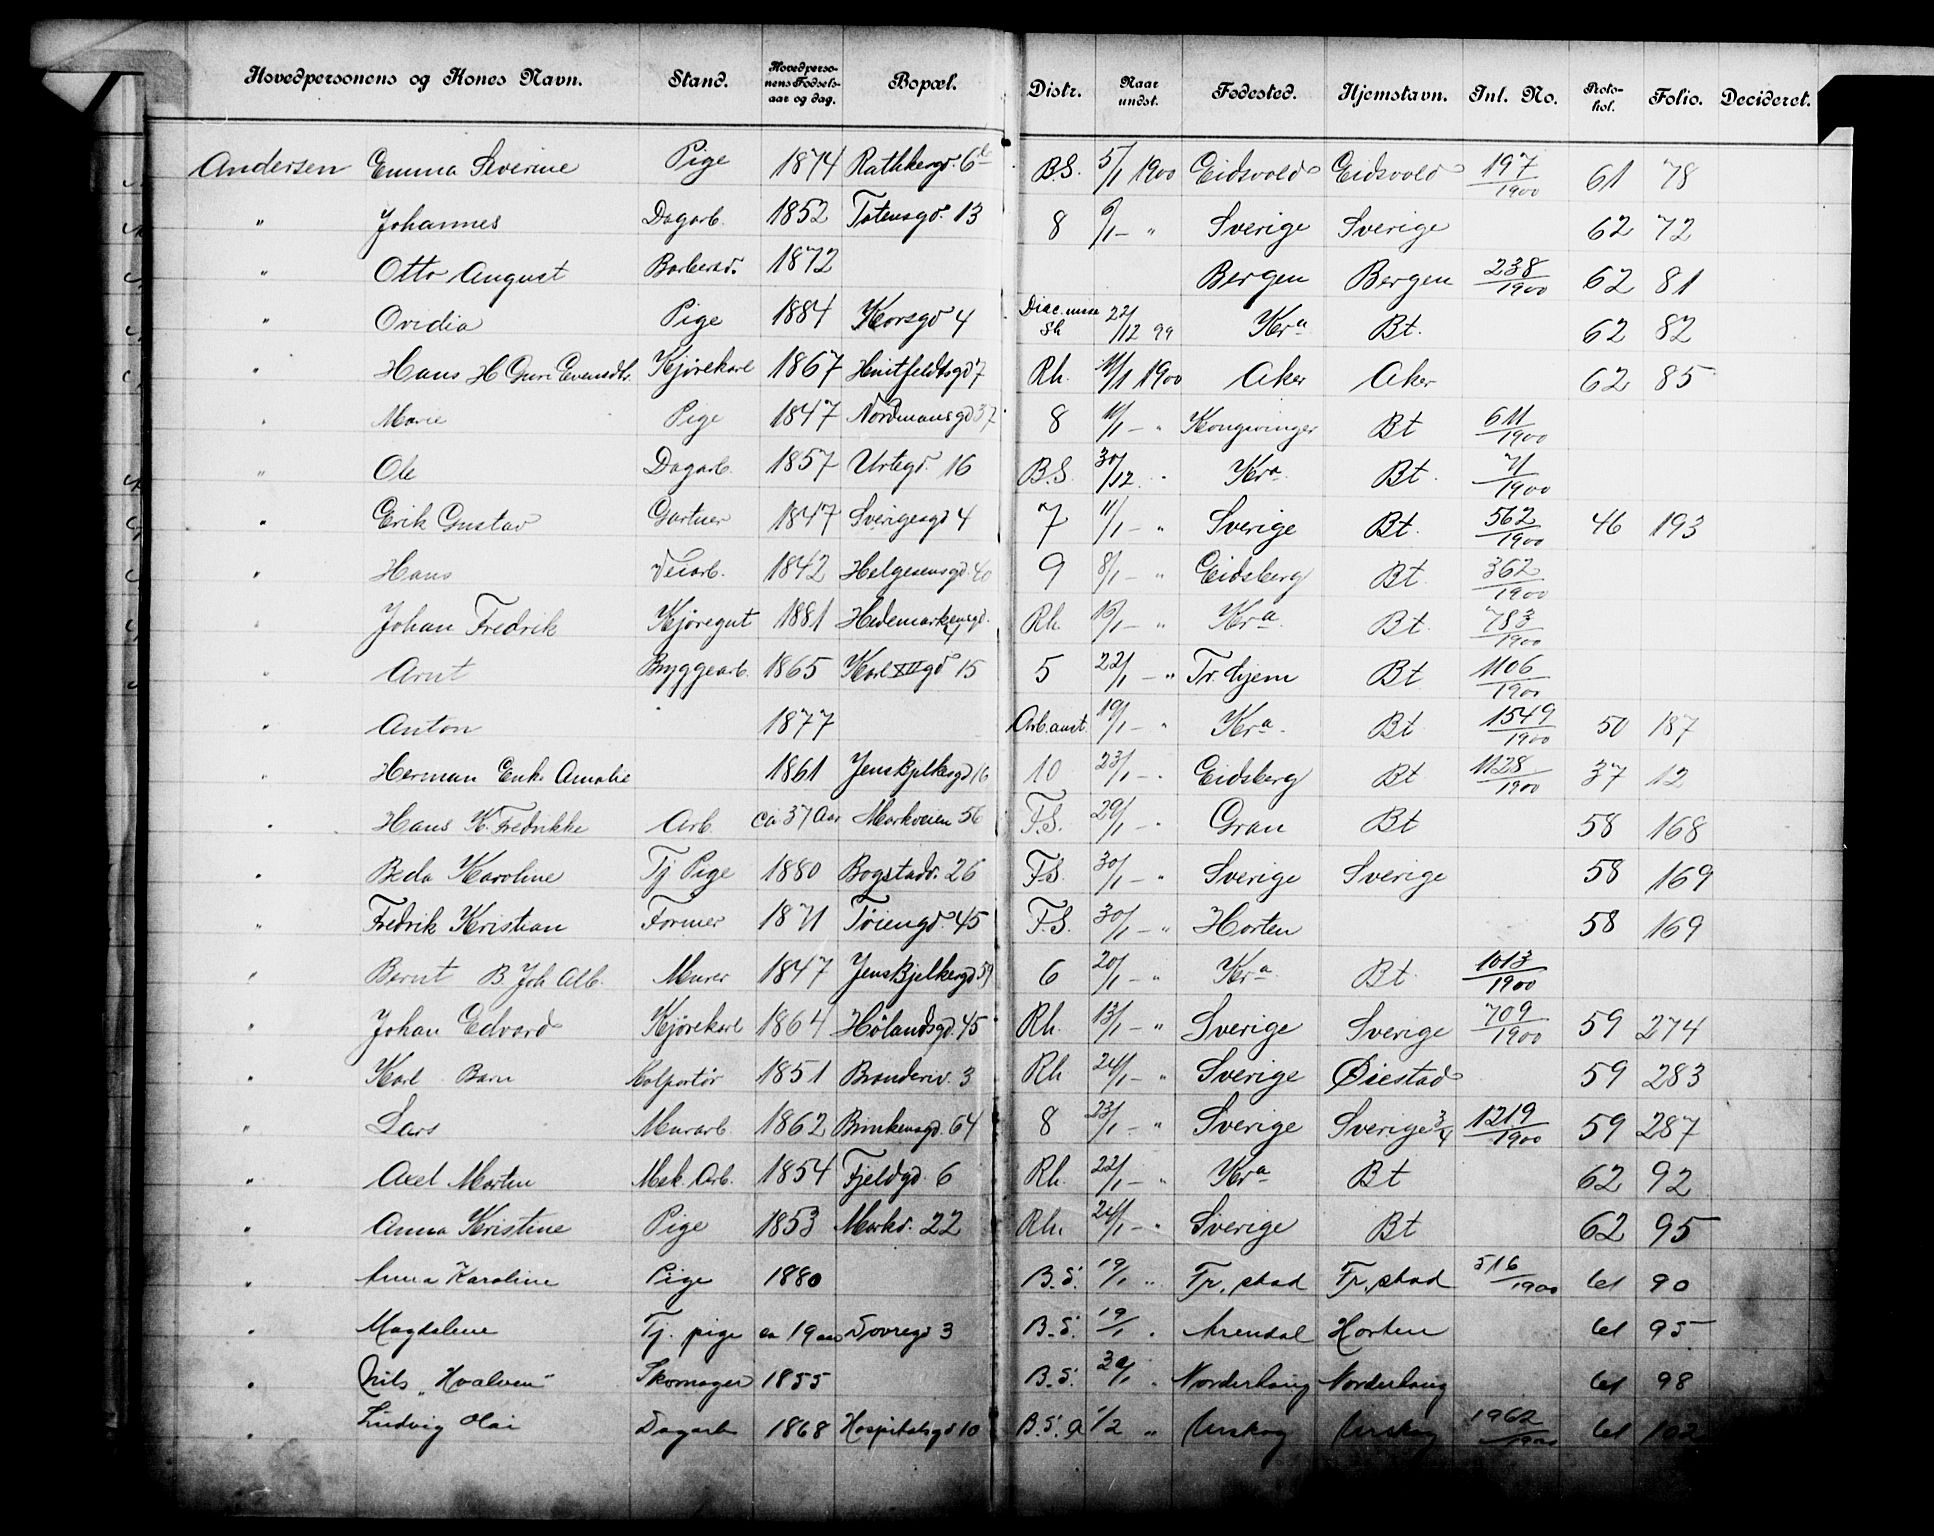 Hovedpersonens og Kones Navn. Stand. Hovedpersonens Fødselsaar og dag. Bopæl. Distr. Naar undst. Fødested. Hjemstavn. Inl. No. Protokol. Folio. Decideret.
Andersen Emma Severine Pige 1874 Rathkesgd. 6 B.S. 5/1 1900 Eidsvold Eidsvold 197/1900 61 78
" Johannes Dagarb. 1852 Totensgd. 13 8 6/1 – " Sverige Sverige 62 72
" Otto August Barbersv. 1872 Bergen Bergen 238/1900 62 81
" Ovidia Pige 1884 Korsgd 4 22/12 99 Kra Bt. 62 82
" Hans H Guri Evensdtr. Kjørekarl 1867 Huitfeldtsgd 7 Rh. 11/1 1900 Aker Aker 62 85
" Marie Pige 1847 Nordmansgd 37 8 11/1 – " Kongsvinger Bt 611/1900
" Ole Dagarb. 1857 Urtegd. 16 B.S. 30/12 " Kra. Bt. 71/1900
" Erik Gustav Gartner 1847 Sverigesgd 4 7 11/1 – " Sverige Bt. 562/1900 46 193
" Hans Veiarb. 1842 Helgesensgd. 40 9 8/1 – " Eidsberg Bt. 362/1900
" Johan Fredrik Kjøregut 1881 Hedemarkensgd. Rh. 15/1 – " Kra. Bt. 783/1900
" Arnt Byggearb. 1865 Karl XII gd 15 5 22/1 – " Tr.hjem Bt 1106/1900
" Anton 1877 Arb.anst. 19/1 – " Kra. Bt 1549/1900 50 187
" Herman Enke Amalie 1861 Jens Bjelkesgd 16 10 23/1 – " Eidsberg Bt 1128/1900 37 12
" Hans K. Fredrikke Arb. ca 37 Aar Markveien 56 F.S. 29/1 – " Gran Bt 58 168
" Beda Karoline Tj Pige 1880 Bogstadv. 26 F.S. 30/1 – " Sverige Sverige 58 169
" Fredrik Kristian Former 1871 Tøiengd. 45 F.S. 30/1 – " Horten 58 169
" Bernt B. Joh. Alb. Murer 1847 Jens Bjelkesgd 59 6 20/1 – " Kra. Bt. 1013/1900
" Johan Edvard Kjørekarl 1864 Hølandsgd. 45 Rh. 13/1 – " Sverige Sverige 709/1900 59 274
" Karl Barn Kolportør 1851 Branderiv. 3 Rh 24/1 – " Sverige Øiestad 59 283
" Lars Murarb. 1862 Brinkensgd. 64 8 23/1 – " Sverige Sverige 3/4 1219/1900 59 287
" Axel Martin Mek. Arb. 1854 Fjeldgd. 6 Rh. 22/1 – " Kra Bt 62 92
" Anna Kristine Pige 1853 Markv. 22 Rh. 24/1 – " Sverige Bt 62 95
" Anna Karoline Pige 1880 B.S. 19/1 " Fr.stad Fr.stad 516/1900 61 90
" Magdalene Tj. pige ca 19 aar Dovregd 3 B.S. 19/1 " Arendal Horten 61 95
" Nils "Hvalven" Skomager 1855 B.S. 30/1 " Norderhaug Norderhaug 61 98
" Ludvig Olai Dagarb 1868 Hospitalsgd 10 B.S. a 1/2 " Urskog Urskog 1962/1900 61 102